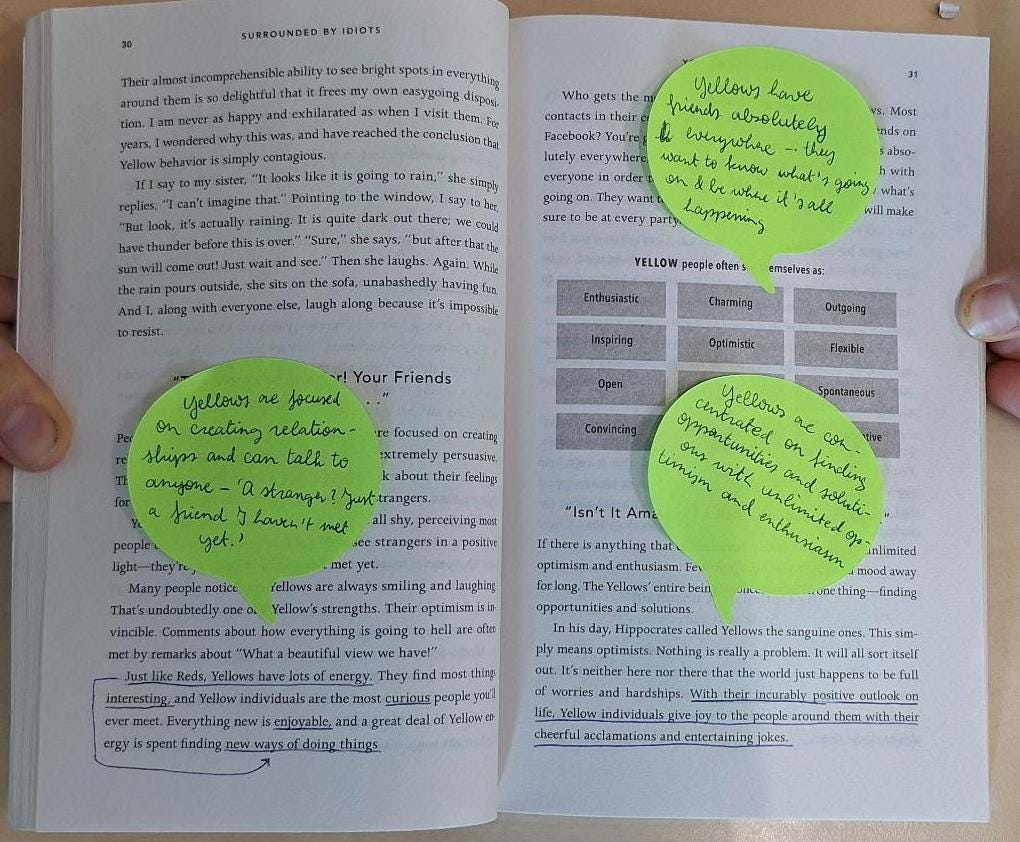 30
SURROUNDED BY IDIOTS
Their almost incomprehensible ability to see bright spots in everything
around them is so delightful that it frees my own easygoing disposi-
tion. I am never as happy and exhilarated as when I visit them. For
years, I wondered why this was, and have reached the conclusion that
Yellow behavior is simply contagious.
If I say to my sister, "It looks like it is going to rain," she simply
replies, "I can't imagine that." Pointing to the window, I say to her,
"But look, it's actually raining. It is quite dark out there; we could
have thunder before this is over." "Sure," she says, "but after that the
sun will come out! Just wait and see." Then she laughs. Again. While
the rain pours outside, she sits on the sofa, unabashedly having fun.
And I, along with everyone else, laugh along because it's impossible
to resist.
r! Your Friends
. ."
Yellows are focused
on creating relation-
ships and can talk to
anyone – 'A stranger? Just
a friend I haven't met
yet.'
re focused on creating
extremely persuasive.
k about their feelings
for trangers.
all shy, perceiving most
people see strangers in a positive
light—they're met yet.
Many people notice Yellows are always smiling and laughing
That's undoubtedly one o Yellow's strengths. Their optimism is in-
vincible. Comments about how everything is going to hell are often
met by remarks about "What a beautiful view we have!"
Just like Reds, Yellows have lots of energy. They find most things
interesting, and Yellow individuals are the most curious people you'll
ever meet. Everything new is enjoyable, and a great deal of Yellow en-
ergy is spent finding new ways of doing things
31
Yellows have
friends absolutely
everywhere – they
want to know what's going
on & be where it's all
happening
Who gets the m ws. Most
contacts in their c ends on
Facebook? You're g s abso-
lutely everywhere h with
everyone in order t , what's
going on. They want t will make
sure to be at every party
YELLOW people often s emselves as:
Enthusiastic Charming Outgoing
Inspiring Optimistic Flexible
Open Spontaneous
Convincing tive
Yellows are con-
centrated on finding
opportunities and soluti-
ons with unlimited op-
timism and enthusiasm
"Isn't It Ama "
If there is anything that unlimited
optimism and enthusiasm. Few a mood away
for long. The Yellows' entire bein one thing—finding
opportunities and solutions.
In his day, Hippocrates called Yellows the sanguine ones. This sim-
ply means optimists. Nothing is really a problem. It will all sort itself
out. It's neither here nor there that the world just happens to be full
of worries and hardships. With their incurably positive outlook on
life, Yellow individuals give joy to the people around them with their
cheerful acclamations and entertaining jokes.